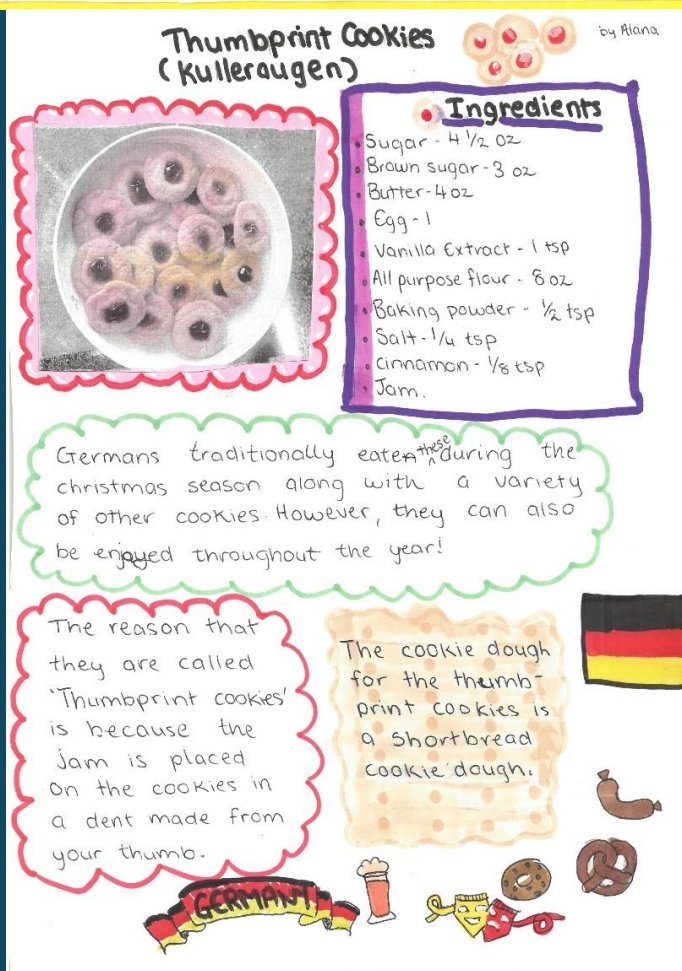 Thumbprint Cookies
(Kulleraugen)
by Alana
Ingredients
• Sugar - 4 1/2 oz
• Brown sugar - 3 oz
• Butter - 4 oz
• Egg - 1
• Vanilla Extract - 1 tsp
• All purpose flour - 8 oz
• Baking powder - 1/2 tsp
• Salt - 1/4 tsp
• cinnamon - 1/8 tsp
• Jam.
Germans traditionally eaten these during the
christmas season along with a variety
of other cookies. However, they can also
be enjoyed throughout the year!
The reason that
they are called
'Thumbprint cookies'
is because the
jam is placed
on the cookies in
a dent made from
your thumb.
The cookie dough
for the thumb-
print cookies is
a shortbread
cookie dough.
GERMANY